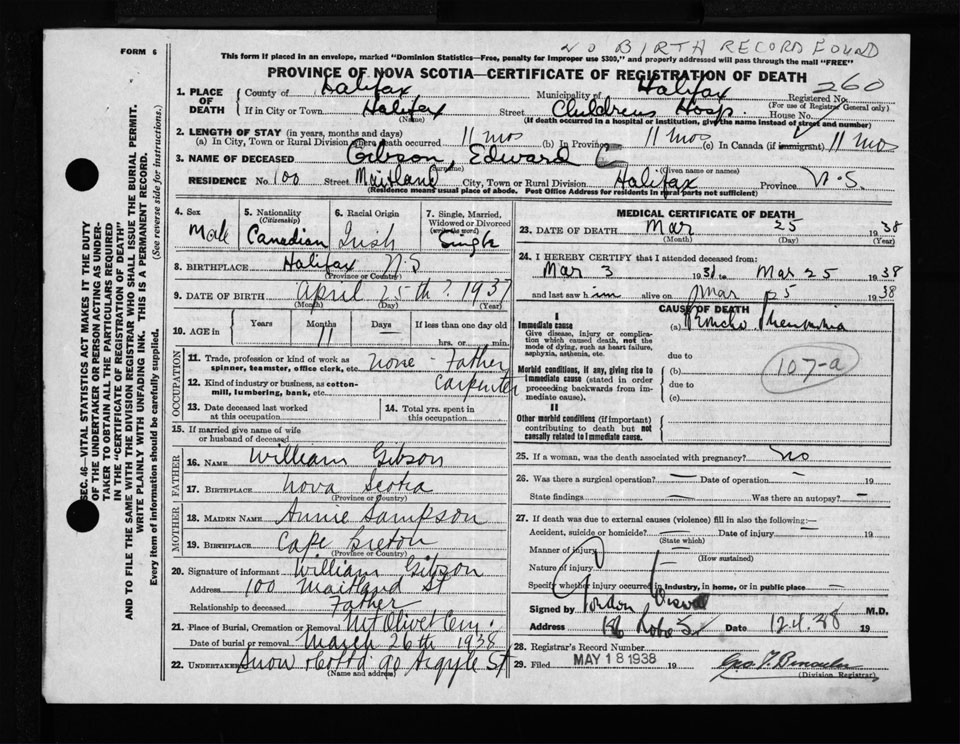 NO BIRTH RECORD FOUND
FORM 6
This form if placed in an envelope, marked "Dominion Statistics—Free, penalty for improper use $300," and properly addressed will pass through the mail "FREE"
PROVINCE OF NOVA SCOTIA—CERTIFICATE OF REGISTRATION OF DEATH
1. PLACE OF DEATH County of Halifax Municipality of Halifax Registered No. 260
(For use of Registrar General only)
If in City or Town Halifax Street Childrens Hosp. House No.
(Name) (If death occurred in a hospital or institution, give the name instead of street and number)
2. LENGTH OF STAY (in years, months and days)
(a) In City, Town or Rural Division where death occurred 11 mos (b) In Province 11 mos (c) In Canada (if immigrant) 11 mos
3. NAME OF DECEASED Gibson, Edward C
(Surname) (Given name or names)
RESIDENCE No. 100 Street Maitland City, Town or Rural Division Halifax Province N.S.
(Residence means usual place of abode. Post Office Address for residents in rural parts not sufficient)
4. Sex Male
5. Nationality (Citizenship) Canadian
6. Racial Origin Irish
7. Single, Married, Widowed or Divorced (write the word) Single
8. BIRTHPLACE Halifax N.S
(Province or Country)
9. DATE OF BIRTH April 25th ? 1937
(Month) (Day) (Year)
10. AGE in Years Months 11 Days — If less than one day old hrs. or min.
OCCUPATION
11. Trade, profession or kind of work as spinner, teamster, office clerk, etc. none - Father
12. Kind of industry or business, as cotton-mill, lumbering, bank, etc. Carpenter
13. Date deceased last worked at this occupation
14. Total yrs. spent in this occupation
15. If married give name of wife or husband of deceased
FATHER
16. NAME William Gibson
17. BIRTHPLACE Nova Scotia
(Province or Country)
MOTHER
18. MAIDEN NAME Annie Sampson
19. BIRTHPLACE Cape Breton
(Province or Country)
20. Signature of informant William Gibson
Address 100 Maitland St
Relationship to deceased Father
21. Place of Burial, Cremation or Removal Mt Olivet Cem.
Date of burial or removal March 26th 1938
22. UNDERTAKER Snow & Co Ltd 90 Argyle St
(Name and address)
MEDICAL CERTIFICATE OF DEATH
23. DATE OF DEATH Mar 25 1938
(Month) (Day) (Year)
24. I HEREBY CERTIFY that I attended deceased from:
Mar 3 1938 to Mar 25 1938
and last saw him alive on Mar 25 1938
CAUSE OF DEATH
I
Immediate cause (a) Broncho Pneumonia
Give disease, injury or complication which caused death, not the mode of dying, such as heart failure, asphyxia, asthenia, etc.
due to
Morbid conditions, if any, giving rise to immediate cause (stated in order proceeding backwards from immediate cause). (b)
due to
(c)
107-a
II
Other morbid conditions (if important) contributing to death but not causally related to immediate cause.
25. If a woman, was the death associated with pregnancy? no
26. Was there a surgical operation? — Date of operation 19
State findings — Was there an autopsy? —
27. If death was due to external causes (violence) fill in also the following:—
Accident, suicide or homicide? — Date of injury — 19
(State which)
Manner of injury
(How sustained)
Nature of injury
Specify whether injury occurred in industry, in home, or in public place —
Signed by Gordon M.D.
Address St Date 12.4.38 19
28. Registrar's Record Number
29. Filed MAY 18 1938 19
(Division Registrar)
SEC. 46—VITAL STATISTICS ACT MAKES IT THE DUTY
OF THE UNDERTAKER OR PERSON ACTING AS UNDER-
TAKER TO OBTAIN ALL THE PARTICULARS REQUIRED
IN THE "CERTIFICATE OF REGISTRATION OF DEATH"
AND TO FILE THE SAME WITH THE DIVISION REGISTRAR WHO SHALL ISSUE THE BURIAL PERMIT.
WRITE PLAINLY WITH UNFADING INK. THIS IS A PERMANENT RECORD.
Every item of information should be carefully supplied. (See reverse side for instructions.)